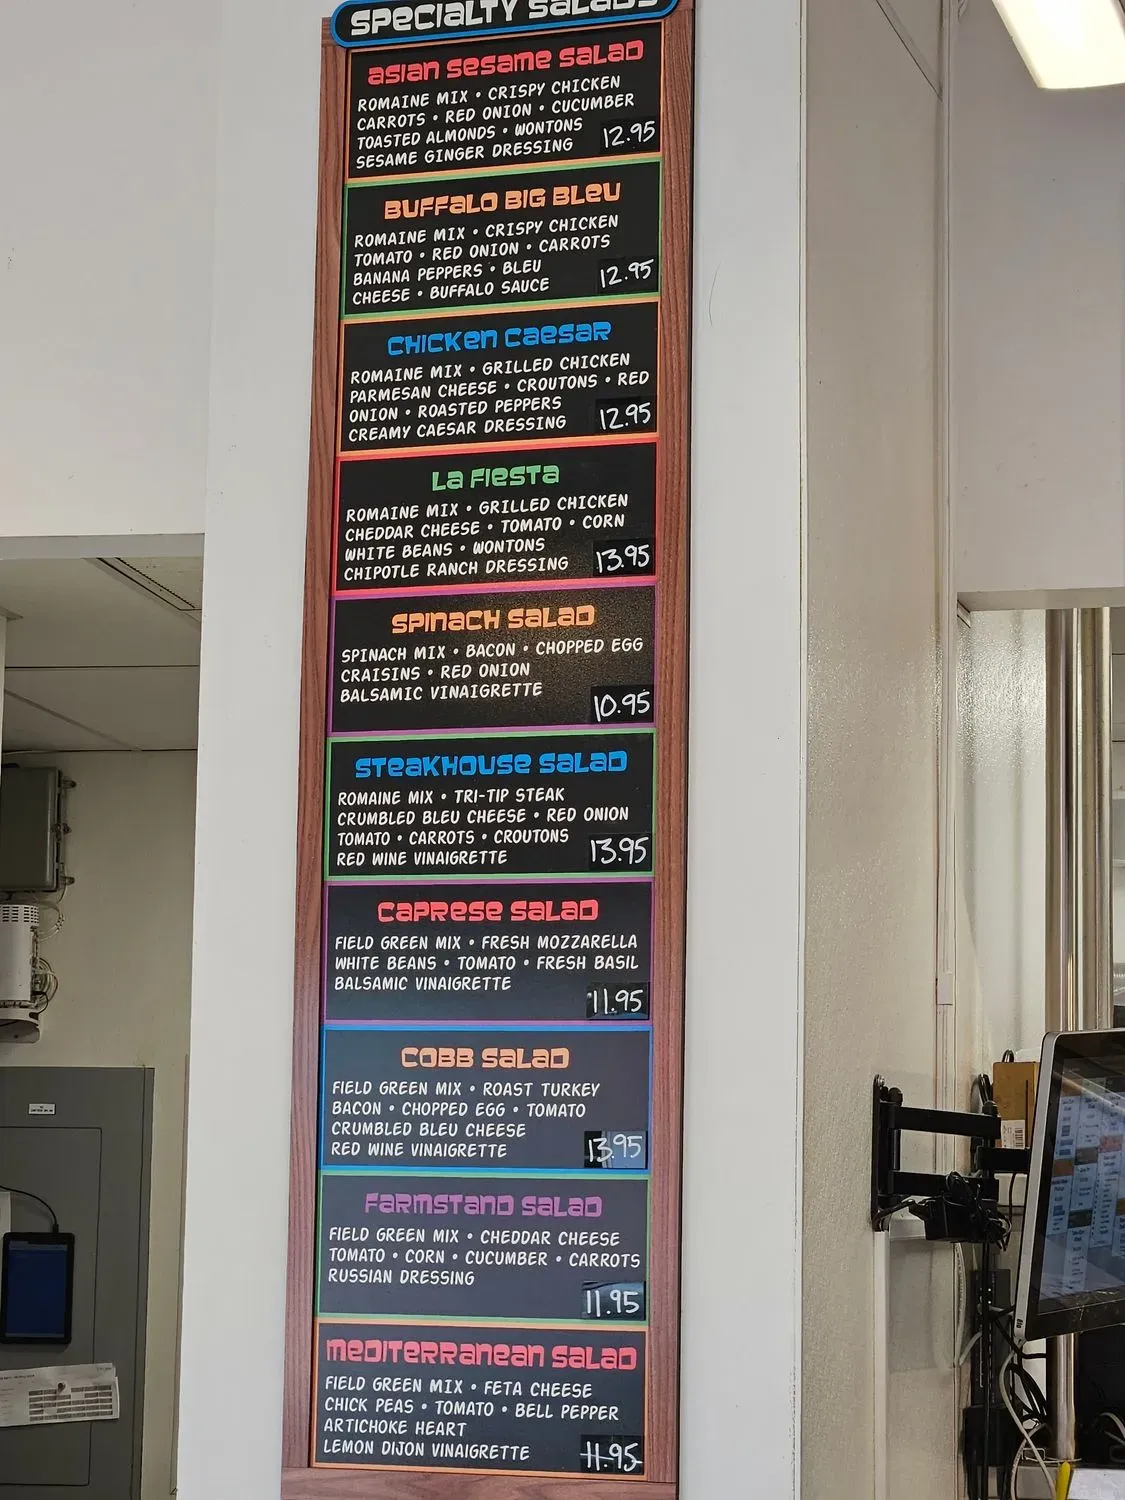 SPECIALTY SALADS
ASIAN SESAME SALAD
ROMAINE MIX • CRISPY CHICKEN
CARROTS • RED ONION • CUCUMBER
TOASTED ALMONDS • WONTONS
SESAME GINGER DRESSING
12.95
BUFFALO BIG BLEU
ROMAINE MIX • CRISPY CHICKEN
TOMATO • RED ONION • CARROTS
BANANA PEPPERS • BLEU
CHEESE • BUFFALO SAUCE
12.95
CHICKEN CAESAR
ROMAINE MIX • GRILLED CHICKEN
PARMESAN CHEESE • CROUTONS • RED
ONION • ROASTED PEPPERS
CREAMY CAESAR DRESSING
12.95
LA FIESTA
ROMAINE MIX • GRILLED CHICKEN
CHEDDAR CHEESE • TOMATO • CORN
WHITE BEANS • WONTONS
CHIPOTLE RANCH DRESSING
13.95
SPINACH SALAD
SPINACH MIX • BACON • CHOPPED EGG
CRAISINS • RED ONION
BALSAMIC VINAIGRETTE
10.95
STEAKHOUSE SALAD
ROMAINE MIX • TRI-TIP STEAK
CRUMBLED BLEU CHEESE • RED ONION
TOMATO • CARROTS • CROUTONS
RED WINE VINAIGRETTE
13.95
CAPRESE SALAD
FIELD GREEN MIX • FRESH MOZZARELLA
WHITE BEANS • TOMATO • FRESH BASIL
BALSAMIC VINAIGRETTE
11.95
COBB SALAD
FIELD GREEN MIX • ROAST TURKEY
BACON • CHOPPED EGG • TOMATO
CRUMBLED BLEU CHEESE
RED WINE VINAIGRETTE
13.95
FARMSTAND SALAD
FIELD GREEN MIX • CHEDDAR CHEESE
TOMATO • CORN • CUCUMBER • CARROTS
RUSSIAN DRESSING
11.95
MEDITERRANEAN SALAD
FIELD GREEN MIX • FETA CHEESE
CHICK PEAS • TOMATO • BELL PEPPER
ARTICHOKE HEART
LEMON DIJON VINAIGRETTE
11.95